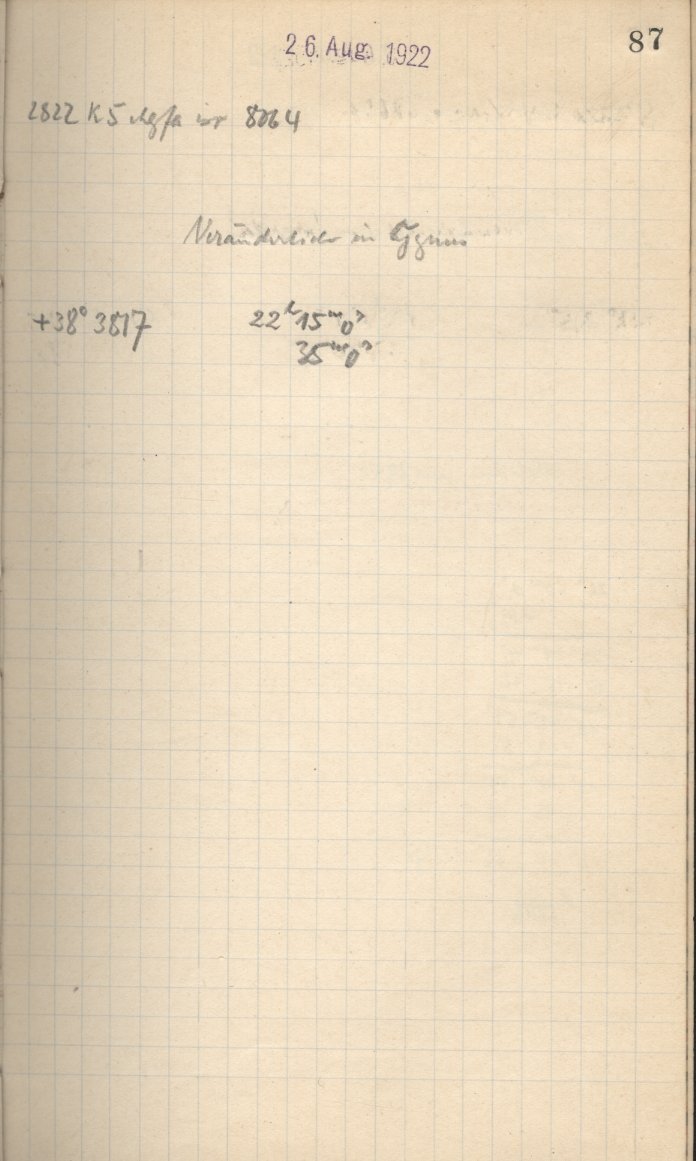 87
26. Aug. 1922
2822 K5 Agfa isr 8064
Veränderlicher in Cygnus
+38° 3817 22ʰ 15ᵐ 0ˢ
35ᵐ 0ˢ